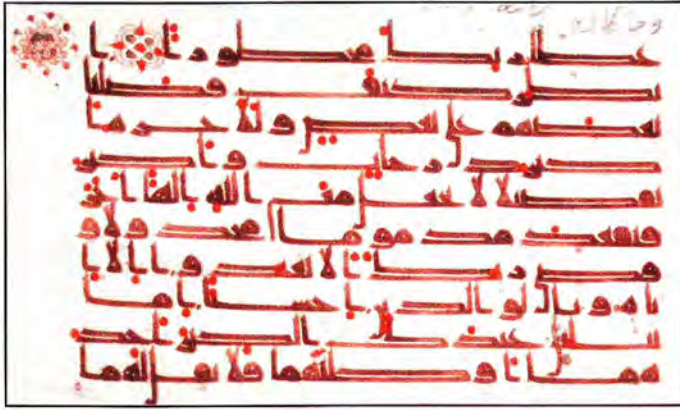 عطا ربك محظورا ا
نظر كيف فضلنا
بعضهم على بعض وللاخرة ا
كبر درجت واكبر
تفضيلا لا تجعل مع الله الها اخر
فتقعد مذموما مخذولا و
قضى ربك الا تعبدوا الا ا
ياه وبالولدين احسنا اما
يبلغن عندك الكبر احد
هما او كلهما فلا تقل لهما